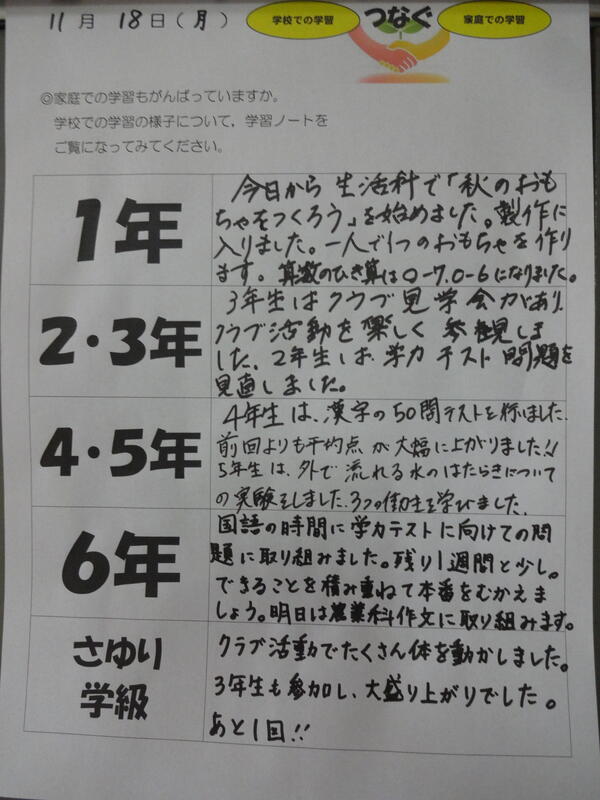 11月 18日(月) 学校での学習 つなぐ 家庭での学習
◎家庭での学習もがんばっていますか。
学校での学習の様子について,学習ノートを
ご覧になってみてください。
1年
今日から 生活科で「秋のおも
ちゃをつくろう」を始めました。製作に
入りました。一人で1つのおもちゃを作り
ます。算数のひき算は○-7,○-6になりました。
2・3年
3年生はクラブ見学会があり、
クラブ活動を楽しく参観しま
した、2年生は、学力テスト問題を
見直しました。
4・5年
4年生は、漢字の50問テストを行いました、
前回よりも平均点が大幅に上がりました!!
5年生は、外で流れる水のはたらきについて
の実験をしました、3つの働きを学びました、
6年
国語の時間に学力テストに向けての問
題に取り組みました。残り1週間と少し。
できることを積み重ねて本番をむかえま
しょう。明日は農業科作文に取り組みます。
さゆり
学級
クラブ活動でたくさん体を動かしました。
3年生も参加し、大盛り上がりでした。
あと1回!!